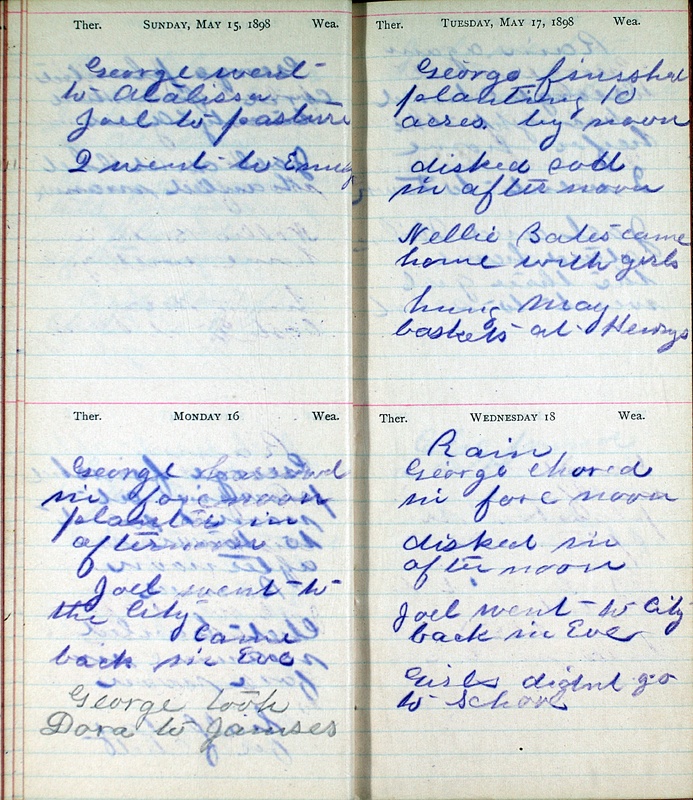 Ther. SUNDAY, MAY 15, 1898 Wea.
George went
to Atalissa
Joel to pasture
I went to Emys
Ther. MONDAY 16 Wea.
George harrowed
in forenoon
planted in
afternoon
Joel went to
the City
Came
back in Eve
George took
Dora to Jamses
Ther. TUESDAY, MAY 17, 1898 Wea.
George finished
planting 10
acres by noon
disked
in afternoon
Nellie Bates came
home with girls
hung May
baskets at Henrys
Ther. WEDNESDAY 18 Wea.
Rain
George chored
in fore noon
disked in
after noon
Joel went to City
back in Eve
Girls didnt go
to School